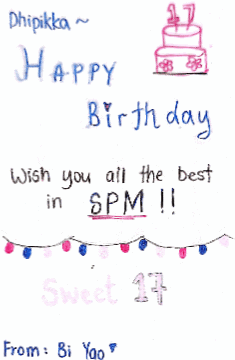 Dhipikka ~
17
HAPPY
Birthday
Wish you all the best
in SPM !!
Sweet 17
From : Bi Yao